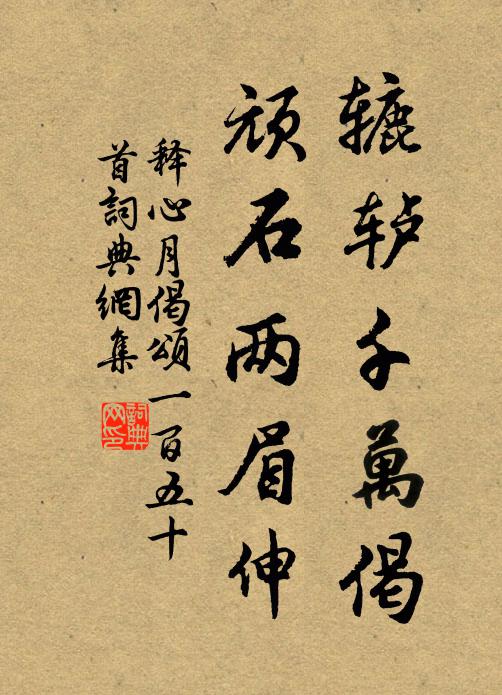 辘轳千萬偈
顽石两眉伸
释心月偈頌一百五十
首詞典網集
詞典
网印